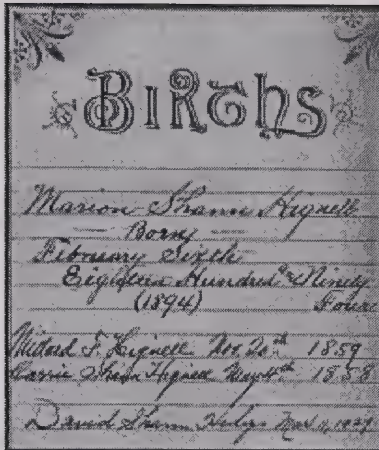 Births
Marion Shann Hignell
— Born —
February Sixth
Eighteen Hundred & Ninety
(1894) Four
F. Hignell Nov. 20th 1859
Carrie Shann Hignell May 4th 1858
David Shann